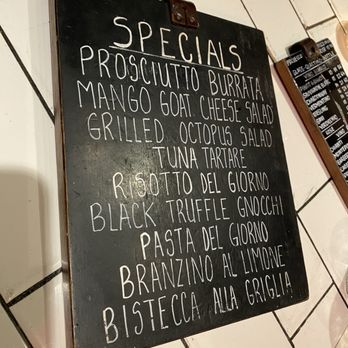 SPECIALS
PROSCIUTTO BURRATA
MANGO GOAT CHEESE SALAD
GRILLED OCTOPUS SALAD
TUNA TARTARE
RISOTTO DEL GIORNO
BLACK TRUFFLE GNOCCHI
PASTA DEL GIORNO
BRANZINO AL LIMONE
BISTECCA ALLA GRIGLIA